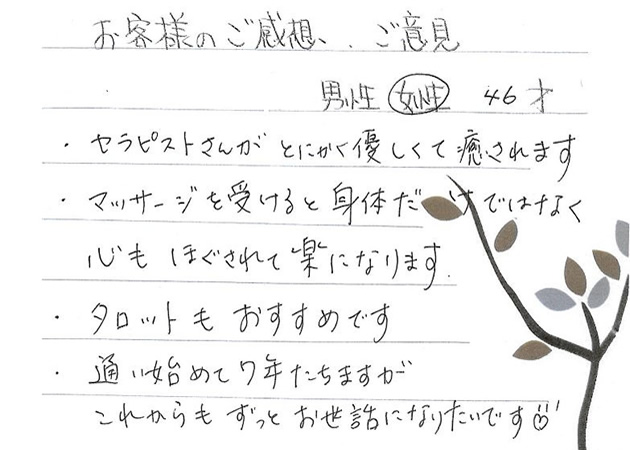 お客様のご感想、ご意見
男性 女性 46才
・セラピストさんがとにかく優しくて癒されます
・マッサージを受けると身体だけではなく
心もほぐされて楽になります.
・タロットもおすすめです
・通い始めて7年たちますが
これからもずっとお世話になりたいです